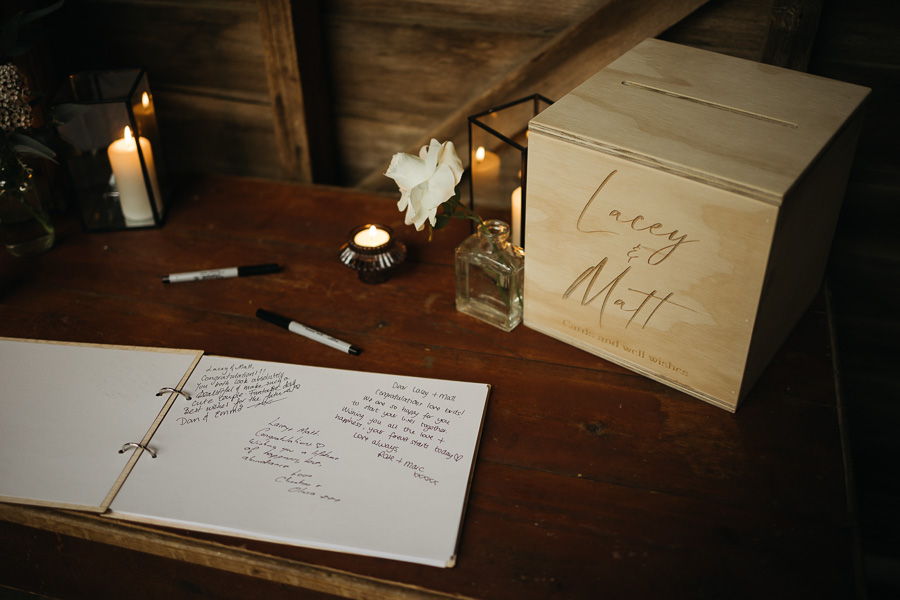 Lacey
&
Matt
Cards and well wishes
Lacey & Matt,
Congratulations!!
You both look absolutely
beautiful & make such a
cute couple. Fantastic day
Best wishes for the future
Dan & Emma
Lacey Matt.
Congratulations ♡
Wishing you a lifetime
of happiness, love,
abundance
Love
Dear Lacey + Matt
Congratulations love birds!
We are so happy for you
to start your life together
Wishing you all the love +
happiness, your forever starts today ♡
Love always
Rose + Marc
xxxxx